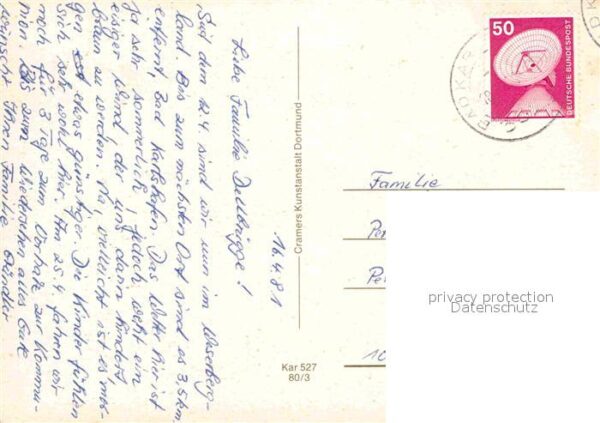 16.4.81
Liebe Familie
Seit dem 12.4. sind wir nun im Weserberg-
land. Bis zum nächsten Ort sind es 3,5 km
entfernt, Bad Karlshafen. Das Wetter hier ist
ja sehr sommerlich, jedoch weht ein
eisiger Wind, der uns dann hindert
braun zu werden. Na, vielleicht ist es mor-
gen etwas günstiger. Die Kinder fühlen
sich sehr wohl hier. Am 25.4. fahren wir
noch für 3 Tage zum Vorhalte zur Kommu-
nion. Bis zum Wiedersehen alles Gute
wünscht Ihnen Familie
Cramers Kunstanstalt Dortmund
Kar 527
80/3
50
DEUTSCHE BUNDESPOST
BAD KAR
Familie
privacy protection
Datenschutz